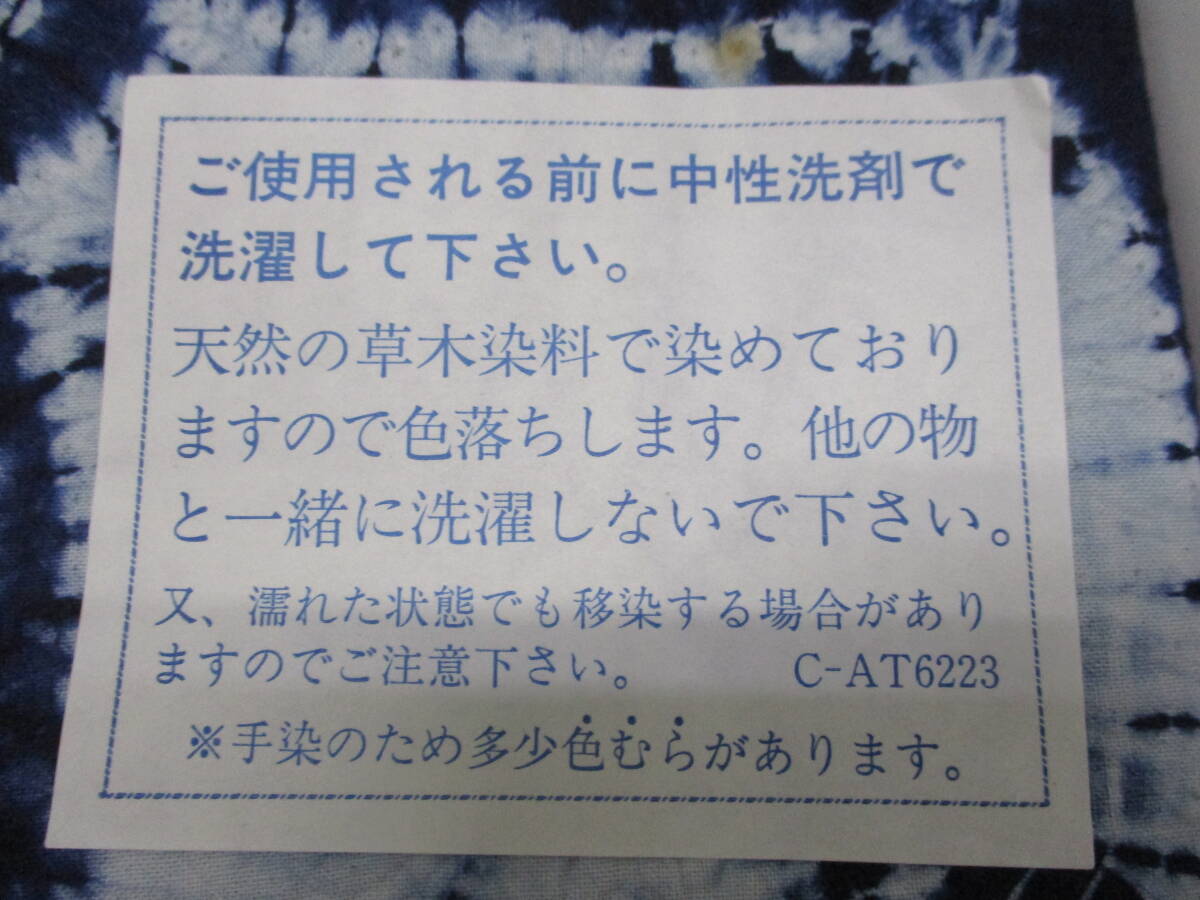 ご使用される前に中性洗剤で
洗濯して下さい。
天然の草木染料で染めており
ますので色落ちします。他の物
と一緒に洗濯しないで下さい。
又、濡れた状態でも移染する場合があり
ますのでご注意下さい。 C-AT6223
※手染のため多少色むらがあります。